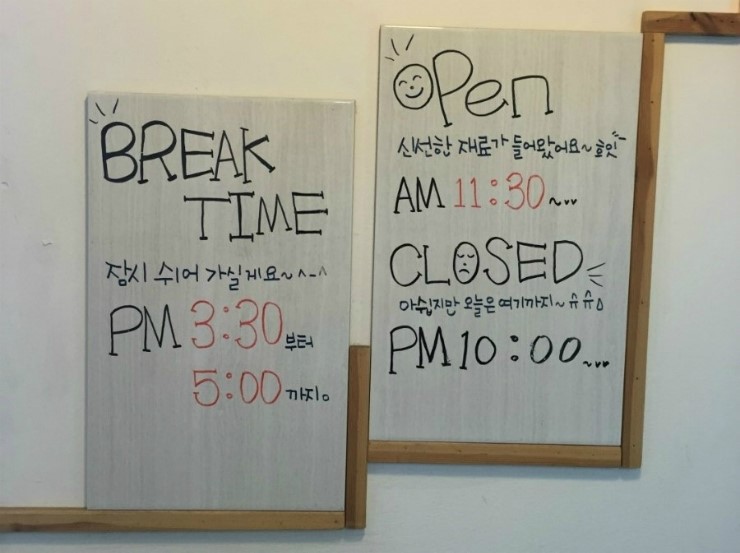 BREAK
TIME
잠시 쉬어 가실게요~^-^
PM 3:30부터
5:00까지。
OPen
신선한 재료가 들어왔어요~ 호잇~
AM 11:30~
CLOSED
아쉽지만 오늘은 여기까지~ㅠㅠ
PM 10:00~